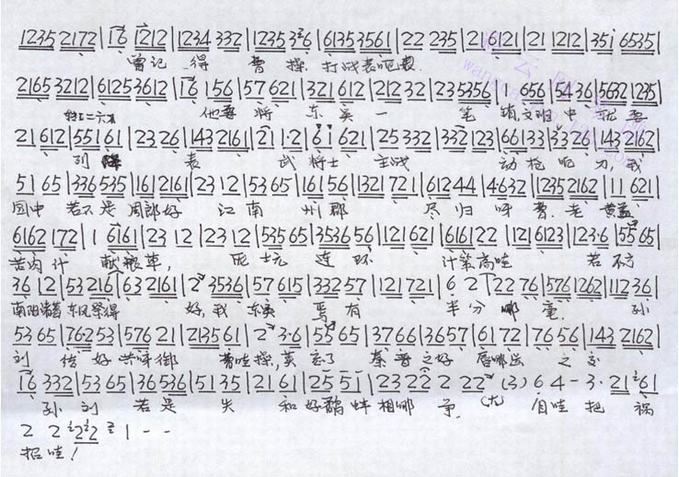 1235 2172 | 16 1212 | 1234 332 | 1235 326 | 6135 3561 | 22 235 | 21 6121 | 21 1212 | 35i 6535 |
曾记得曹操打战表吧表
2165 3212 | 6125 3612 | 16 156 | 57 621 | 321 612 | 212 32 | 235356 | 1 656 | 54 36 | 5632 1235 |
转二六 他要将东吴一笔 文班中
21 612 | 55 161 | 23 26 | 143 2161 | 21 1·2 | 61 621 | 25 332 | 332 123 | 66 133 | 3326 | 143 2162 |
列降表 武将士主战 动枪吧刀, 我
51 65 | 336 535 | 161 2161 | 23 12 | 53 65 | 16 56 | 1321 721 | 612 44 | 4632 | 1235 2162 | 11 621 |
国中若不是周郎好江南州郡尽归呀曹. 老黄盖
6162 172 | 1 6161 | 23 12 | 23 12 | 535 65 | 3536 56 | 121 621 | 6161 22 | 121 6123 | 123·6 | 55 65 |
苦肉计献粮草, 庞士元连环计策高哇 若不亏
36 12 | 53 216 | 63 2161 | 2 3536 | 57 615 | 332 57 | 121 721 | 6 2 | 22 76 | 576 1262 | 112 36 |
南阳诸葛东风祭得好, 我东吴焉有半分哪毫. 孙
53 65 | 762 53 | 576 21 | 2135 61 | 2 3·6 | 55 65 | 37 66 | 36 57 | 61 72 | 76 56 | 143 2162 |
刘结好共呀御曹哇操, 莫忘了秦晋之好唇哪齿之交
16 332 | 53 65 | 36 536 | 51 35 | 21 61 | 25 51 | 23 22 2 22 (3) 6 4 - 3· 21 61 |
孙刘若是失和好鹬蚌相哪争, (大)自哇把祸
2 2 22 1 - -
招哇!